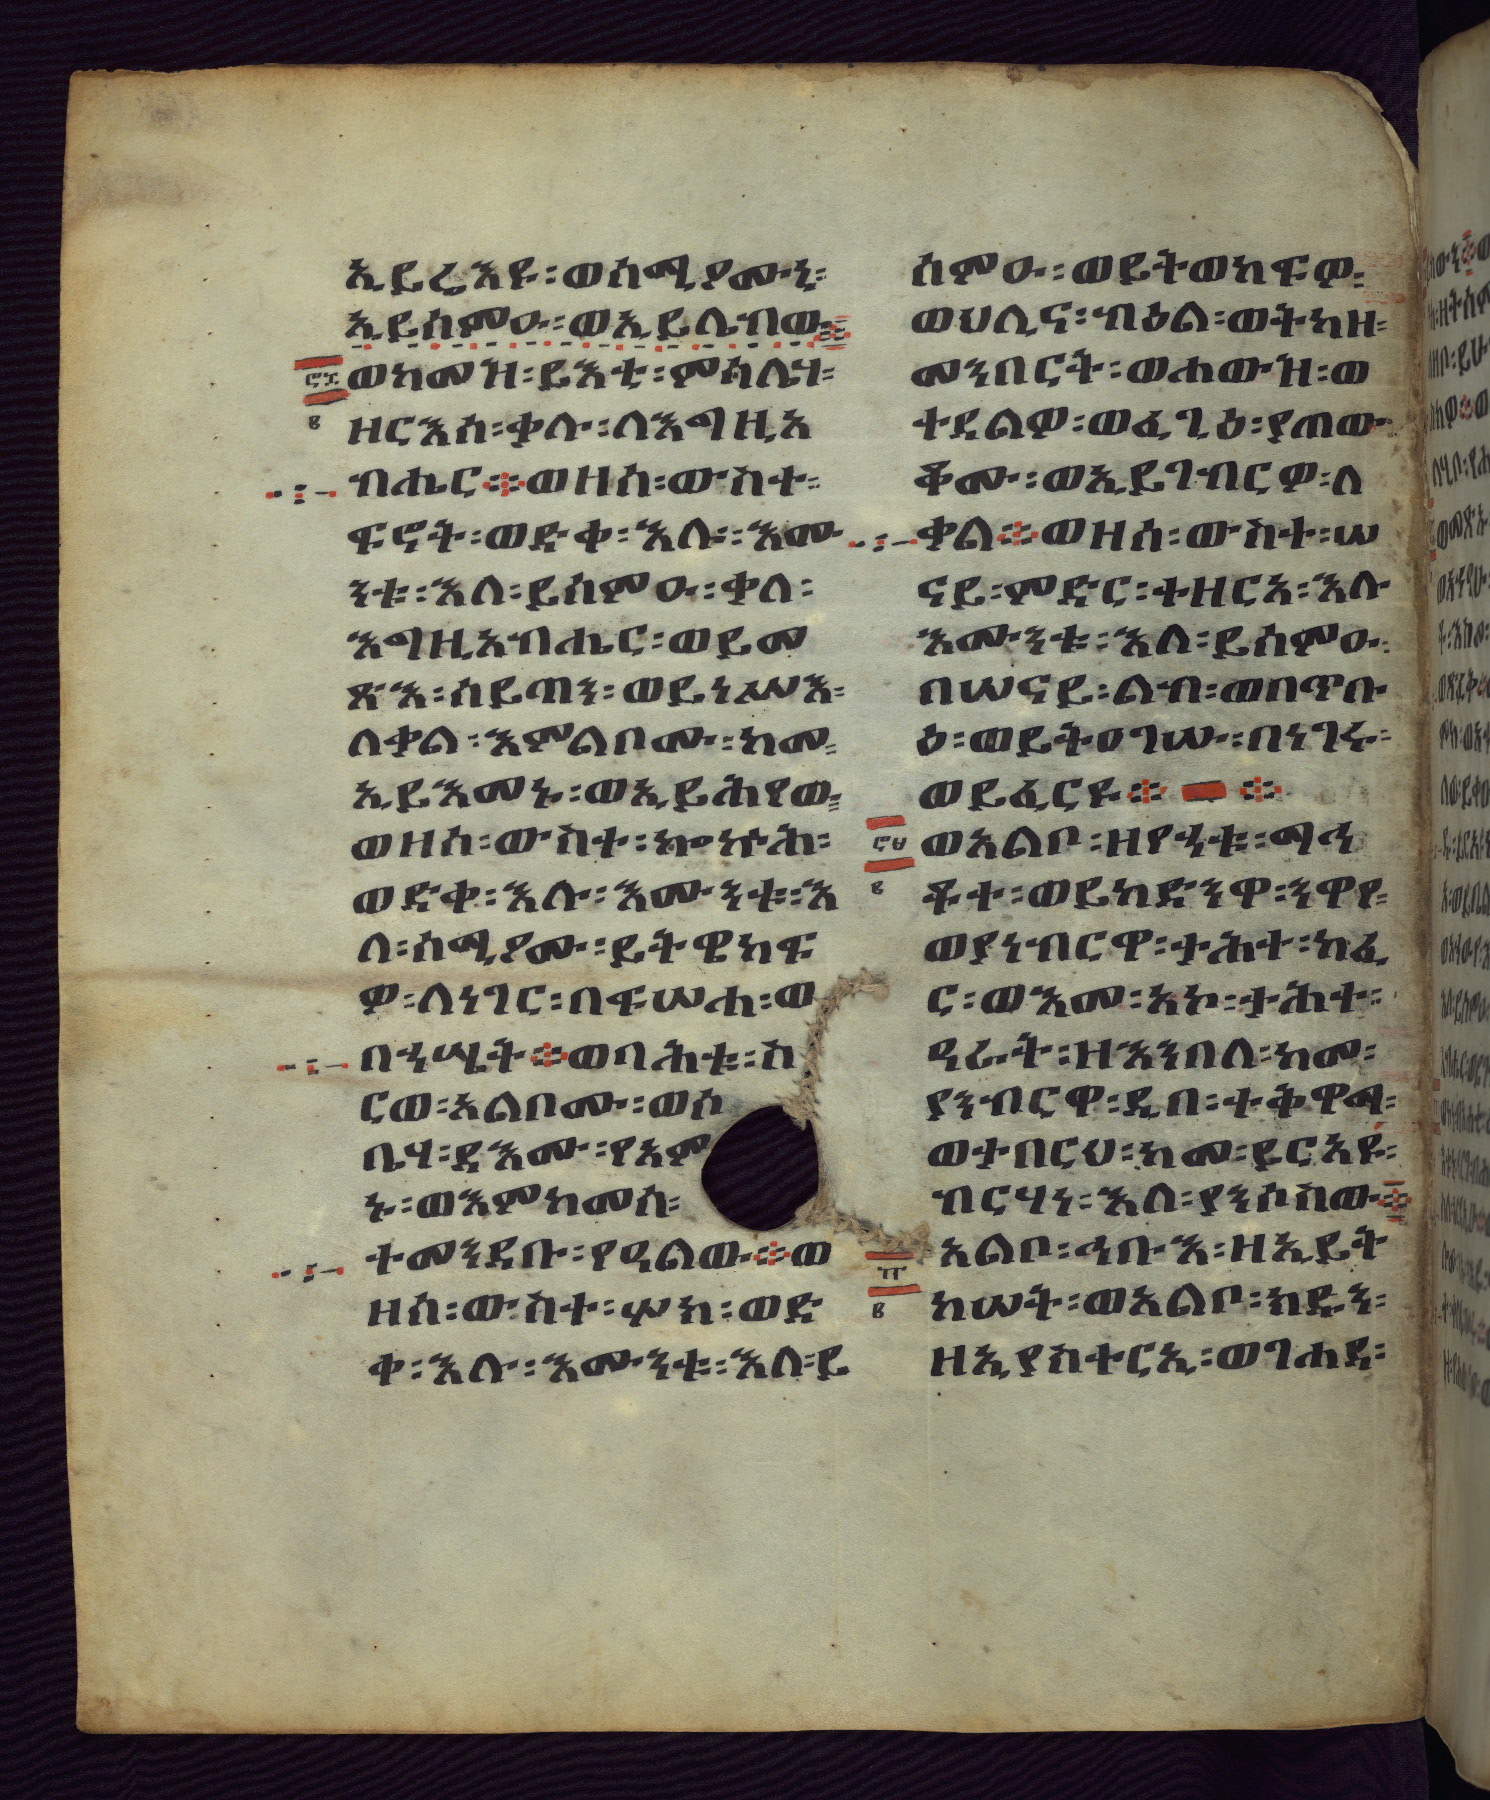 ኢይረእዩ፡ወሰሚዖሙኒ፡
ኢይስምዑ፡ወኢይሌብዉ፨
፸፯ ወከመዝ፡ይእቲ፡ምሳሌሃ፡
፪ ዘርእሰ፡ቃሉ፡ለእግዚአ
ብሔር፨ወዘሰ፡ውስተ፡
ፍኖት፡ወድቀ፡እሉ፡እሙ
ንቱ፡እለ፡ይሰምዑ፡ቃለ፡
እግዚአብሔር፡ወይመ
ጽእ፡ሰይጣን፡ወይነሥእ፡
ለቃል፡እምልቦሙ፡ከመ፡
ኢይእመኑ፡ወኢይሕየዉ፡
ወዘሰ፡ውስተ፡ኰኵሕ፡
ወድቀ፡እሉ፡እሙንቱ፡እ
ለ፡ሰሚዖሙ፡ይትዌከፍ
ዎ፡ለነገር፡በፍሡሐ፡ወ
በኀሤት፨ወባሕቱ፡ስ
ርወ፡አልቦሙ፡ወሶ
ቤሃ፡ዳእሙ፡የአም
ኑ፡ወእምከመሰ፡
ተመንደቡ፡የዓልዉ፨ወ
ዘሰ፡ውስተ፡ሦክ፡ወድ
ቀ፡እሉ፡እሙንቱ፡እለ፡ይ
ሰምዑ፡ወይትወከፍዎ፡
ወህሊና፡ብዕል፡ወትካዘ፡
መንበርት፡ወሐውዝ፡ወ
ተድልዎ፡ወፊጊዕ፡ያጠው
ቆሙ፡ወኢይገብርዎ፡ለ
ቃል፨ወዘሰ፡ውስተ፡ሠ
ናይ፡ምድር፡ተዘርአ፡እሉ
እሙንቱ፡እለ፡ይሰምዑ፡
በሠናይ፡ልብ፡ወበጥቡ
ዕ፡ወይትዐገሡ፡በነገሩ፡
ወይፈርዩ፨ ፨
፸፱ ወአልቦ፡ዘየኀቱ፡ማኅ
፪ ቶተ፡ወይከድንዋ፡ንዋየ፡
ወያነብርዋ፡ታሕተ፡ከፈ
ር፡ወእመ፡አኮ፡ታሕተ፡
ዓራት፡ዘእንበለ፡ከመ፡
ያንብርዋ፡ዲበ፡ተቅዋማ፡
ወተበርህ፡ከመ፡ይርአዩ፡
ብርሃነ፡እለ፡ያንሶስዉ፨
፹ አልቦ፡ኅቡእ፡ዘኢይት
፪ ከሠት፡ወአልቦ፡ክዱን፡
ዘኢያስተርኢ፡ወገሐደ፡